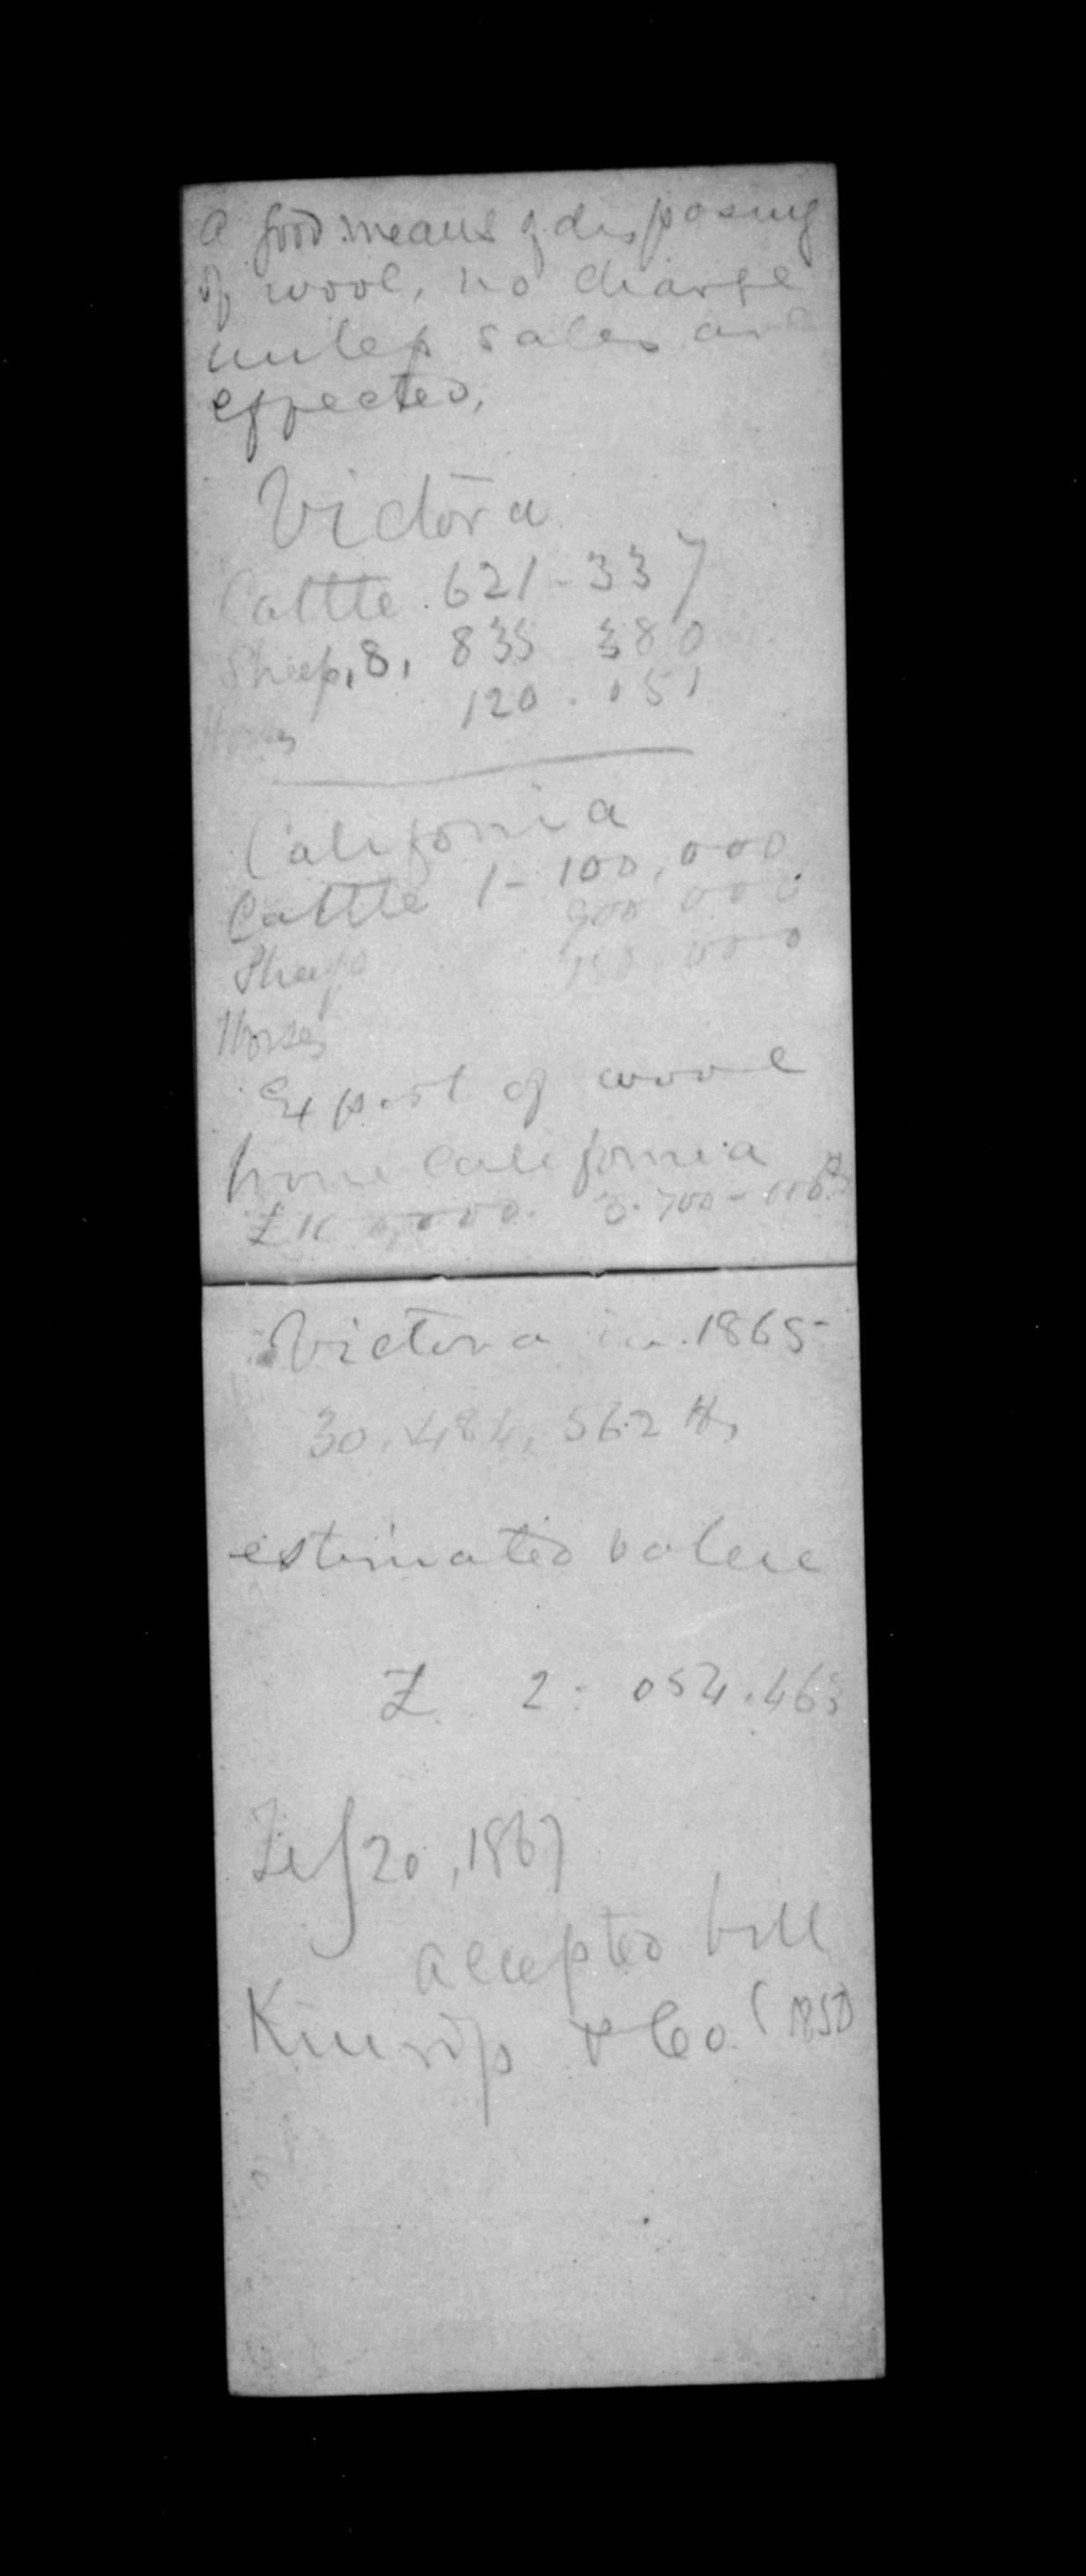 a good means of disposing
of wool, no charge
unless sales are
effected,
Victora
Cattle. 621-337
Sheep, 8, 835 380
Horses 120.051
California
Cattle 1-100,000
Sheep 900 000
Horses 000
Export of wool
from California
3.700-000 lbs
Victora in 1865-
30,484,562 lbs
estimated value
£ 2: 054.465
Feb 20, 1867
accepted bill
& Co (1850